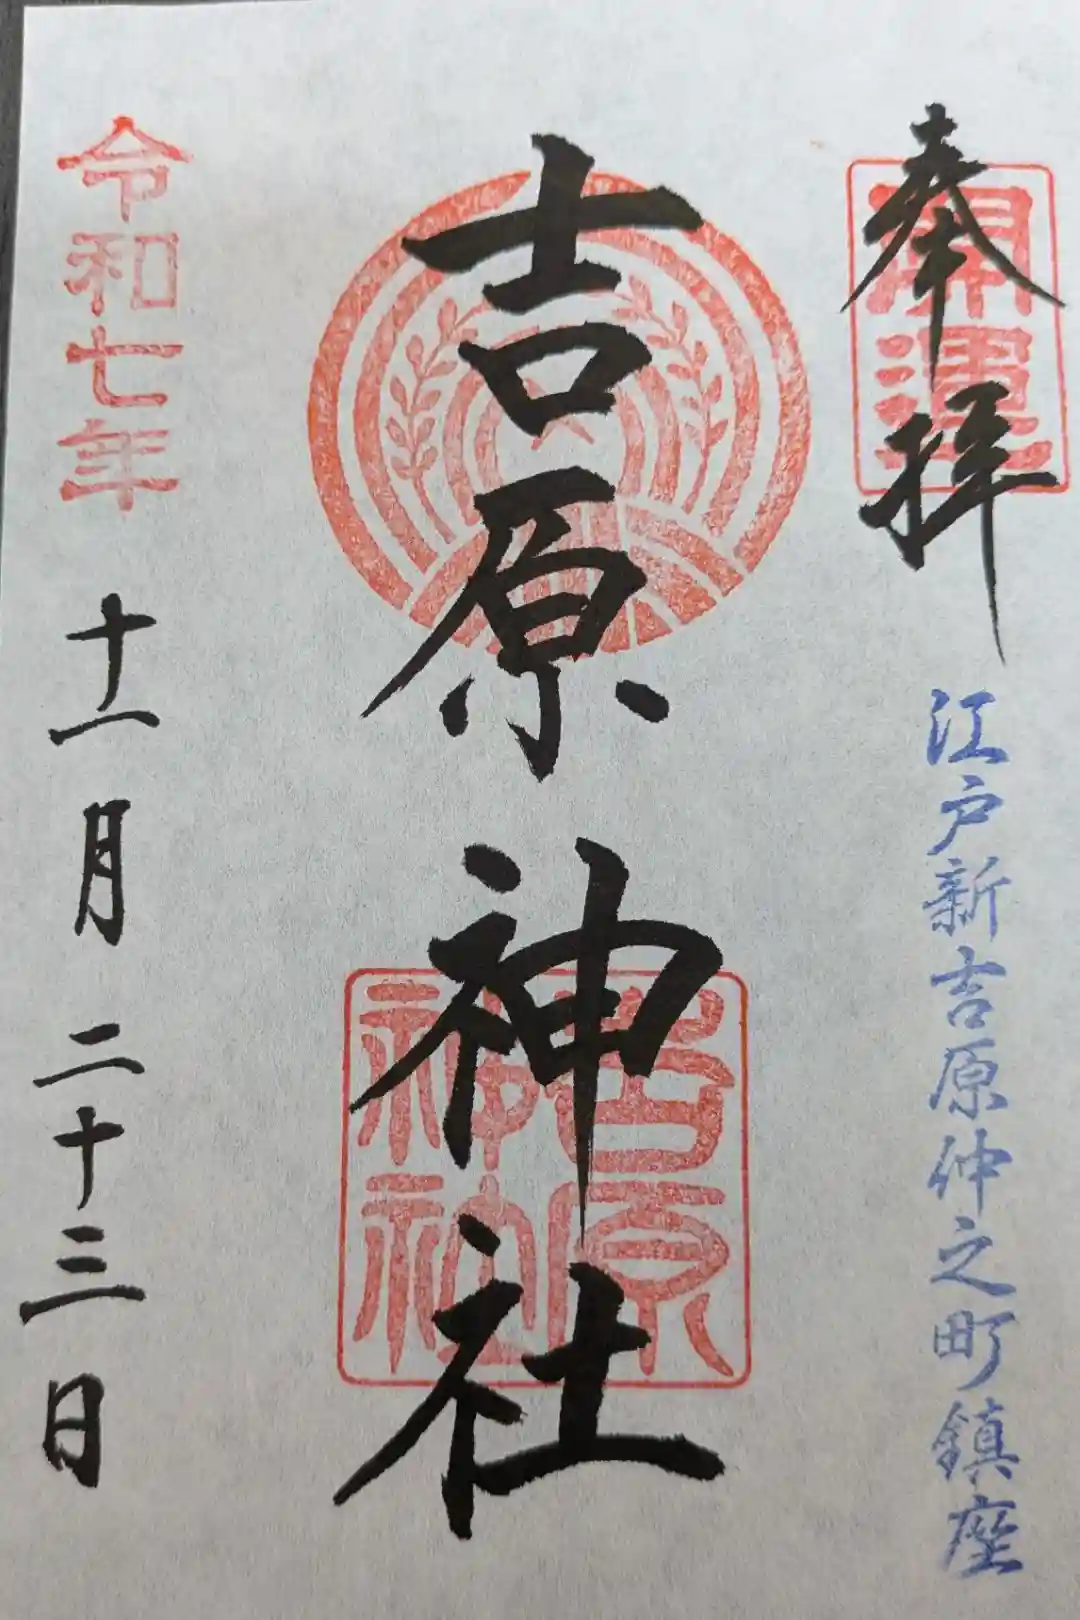 奉拝
開運
江戸新吉原仲之町鎮座
吉原神社
吉原
神社
令和七年
十一月二十三日